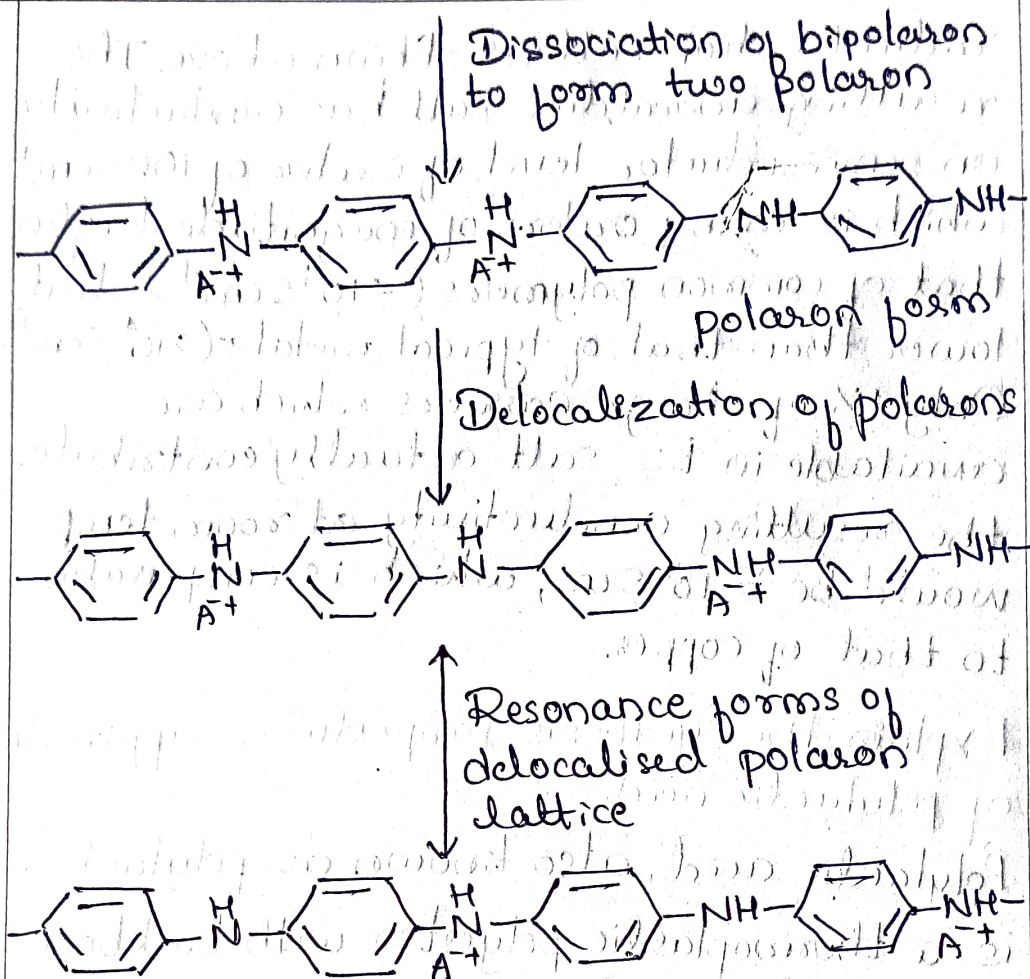 Dissociation of bipolaron
to form two polaron
H
N
A⁻+
H
N
A⁻+
NH
NH
polaron form
Delocalization of polarons
H
N
A⁻+
H
N
NH
A⁻+
NH
Resonance forms of
delocalised polaron
lattice
H
N
H
N
A⁻+
NH
NH
A⁻+